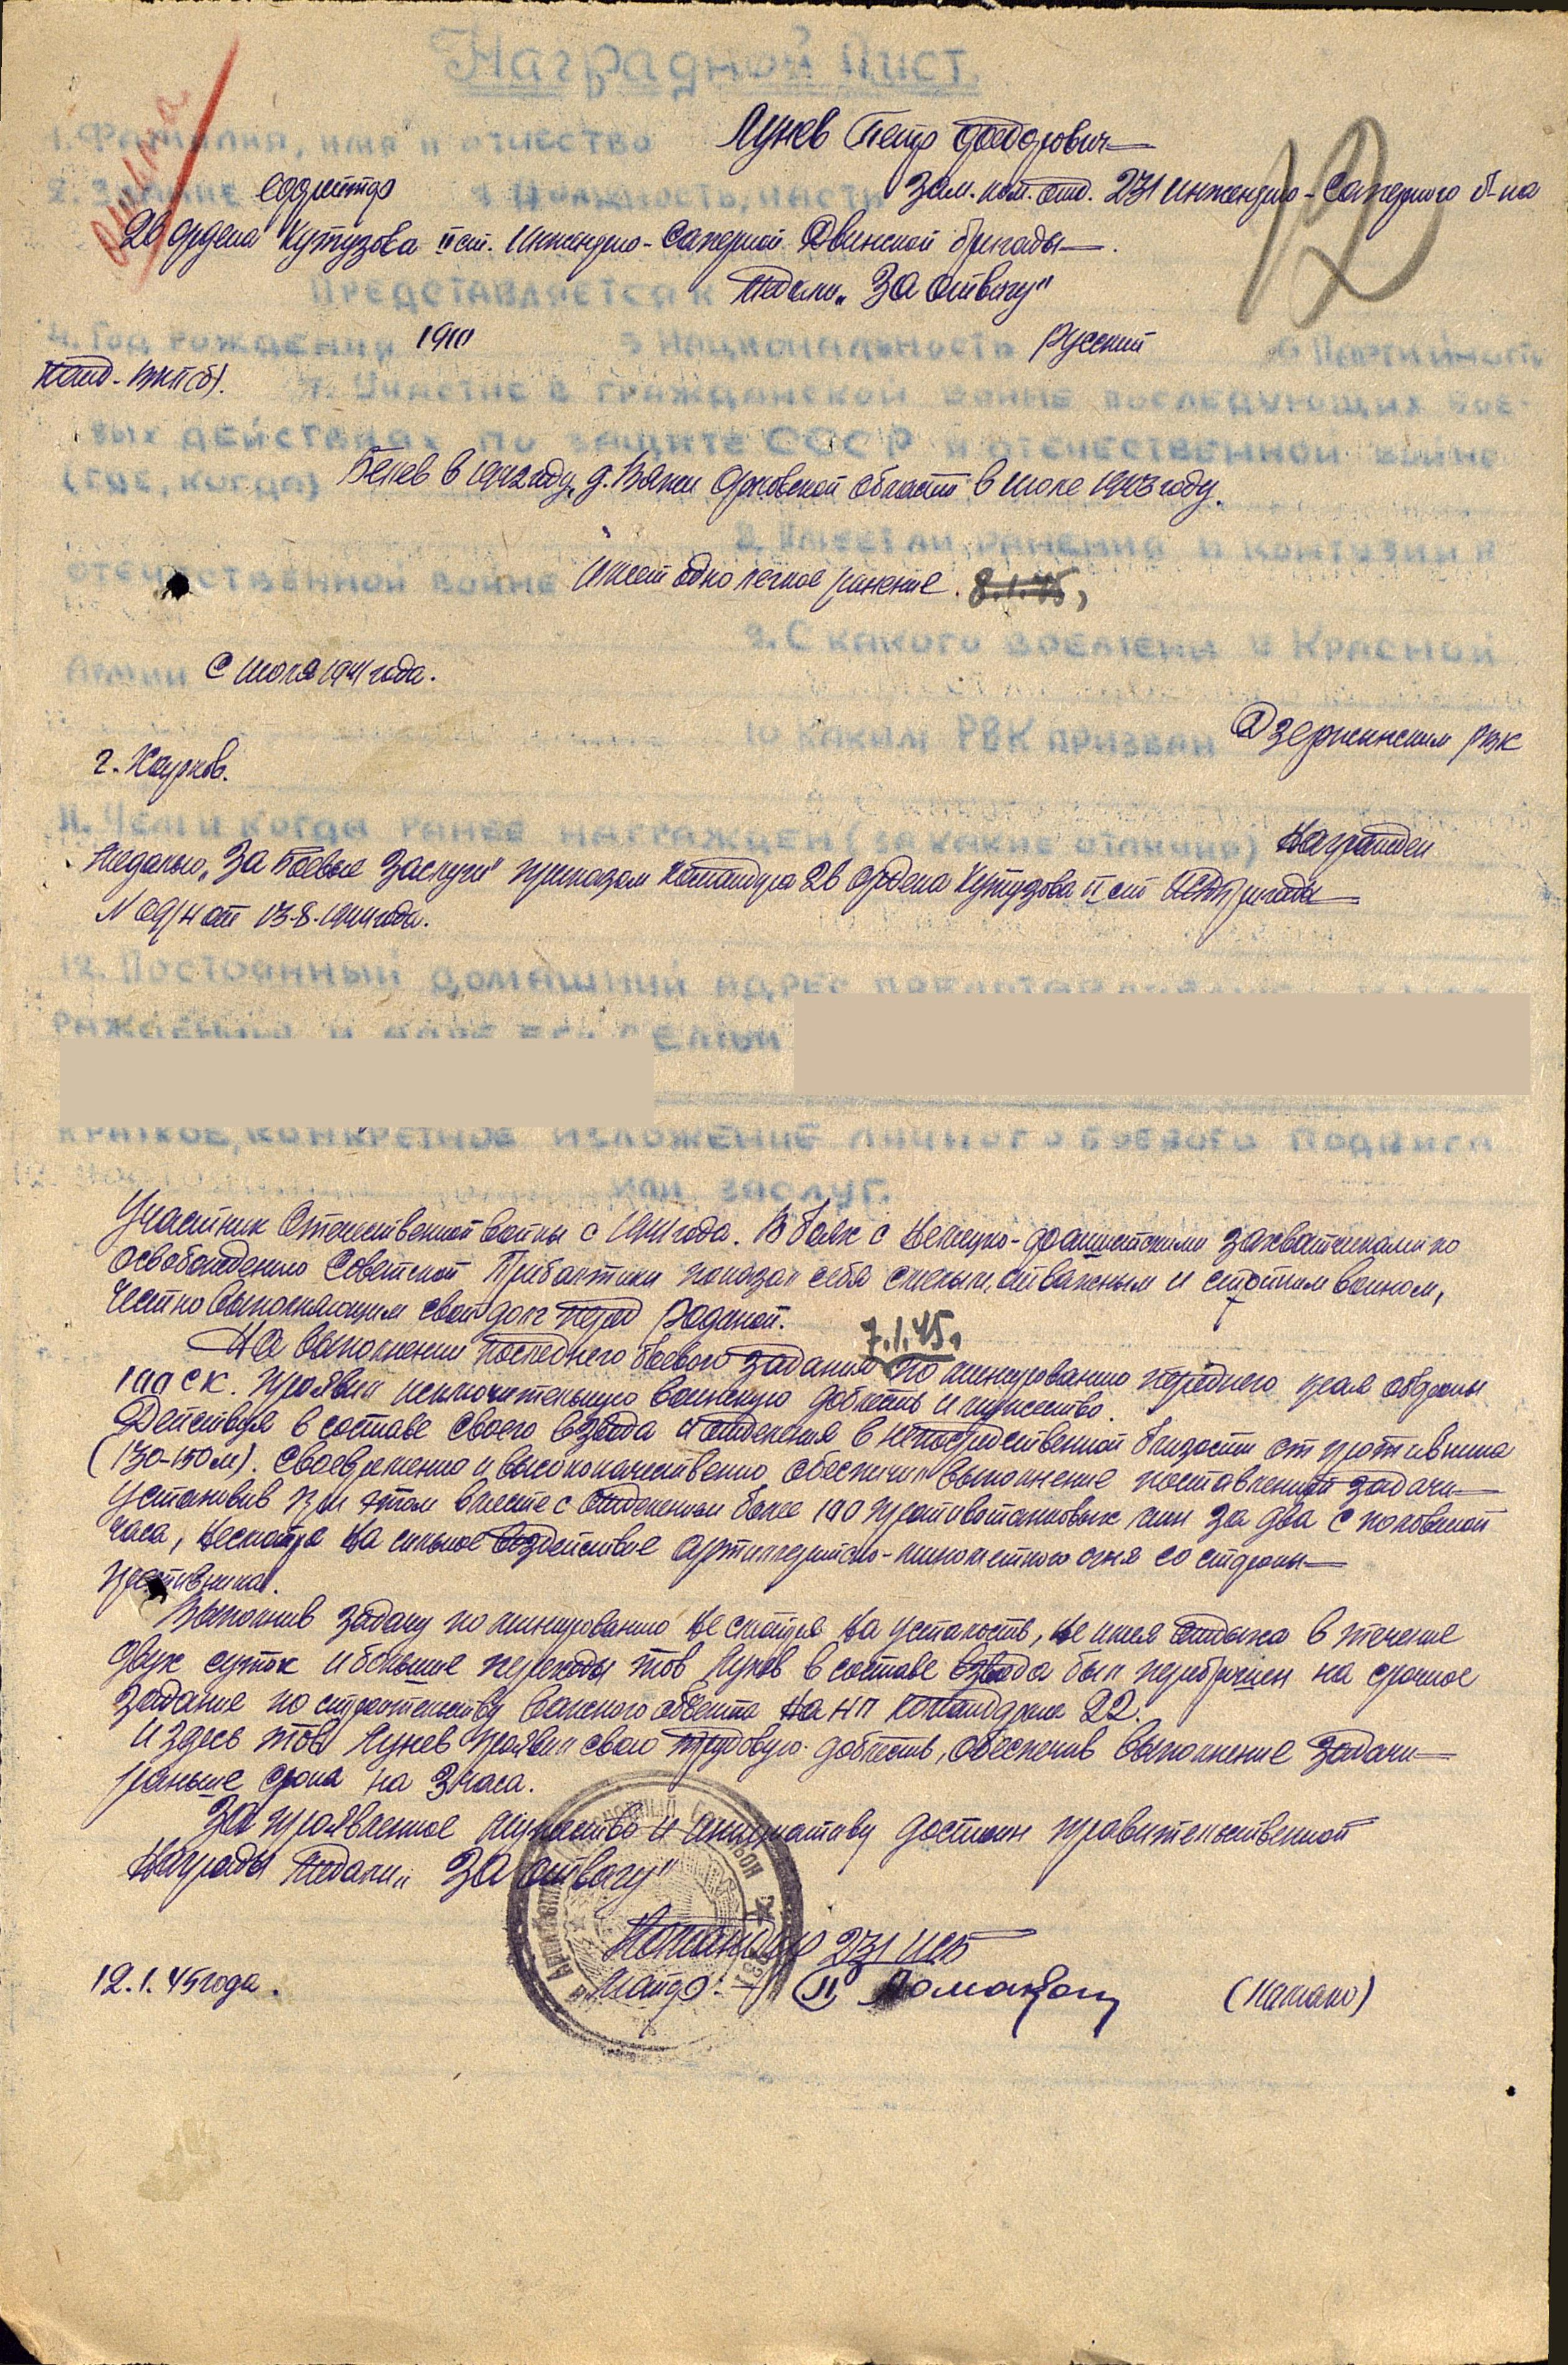 Наградной Лист
1. Фамилия, имя и отчество Лунев Петр Федорович
2. Звание ефрейтор 3 Должность, часть Зам. ком. отд. 231 инженерно-саперного б-на
28 ордена Кутузова II ст. Инженерно-саперной Двинской бригады.
Представляется к медали "За отвагу"
4. Год рождения 1911 5 Национальность Русский 6 Партийность
Канд. ВКП(б). 7. Участие в гражданской войне последующих бое-
вых действиях по защите СССР и отечественной войне
(где, когда) Белев в 1942 году, д. Вяжи Орловской области в июле 1943 году.
8. Имеет ли ранения и контузии в
отечественной войне Имеет одно легкое ранение. 8.1.45,
9. С какого времени в Красной
Армии С июля 1941 года.
10 Каким РВК призван Дзержинским РВК
г. Харьков.
11. Чем и когда ранее награжден (за какие отличия) Награжден
Медалью "За Боевые Заслуги" приказом Командира 28 ордена Кутузова II ст
N 09/н от 13-8-1944 года.
12. Постоянный домашний адрес
семьи
Краткое, конкретное изложение личного боевого подвига
или заслуг.
Участник Отечественной войны с 1941 года. В боях с Немецко-фашистскими захватчиками по
освобождению Советской Прибалтики показал себя смелым, отважным и стойким воином,
Честно выполняющим свой долг перед Родиной.
7.1.45.
На выполнении последнего боевого задания по минированию переднего края обороны
100 ск. проявил исключительную воинскую доблесть и мужество.
Действуя в составе своего взвода и отделения в непосредственной близости от противника
(130-150 м). Своевременно и высококачественно обеспечил выполнение поставленной задачи
Установив при этом вместе с отделением более 100 противотанковых мин за два с половиной
часа, несмотря на сильное воздействие артиллерийско-минометного огня со стороны
противника.
Выполнив задачу по минированию не смотря на усталость, не имея отдыха в течение
двух суток и большие переходы тов Лунев в составе взвода был переброшен на срочное
задание по строительству важного объекта на НП Командарма 22.
И здесь тов Лунев проявил свою трудовую доблесть, обеспечив выполнение задачи
раньше срока на 3 часа.
За проявленное мужество и инициативу достоин правительственной
Награды Медали "За отвагу"
Командир 231 ИСБ
Майор
12.1.45 года.
12